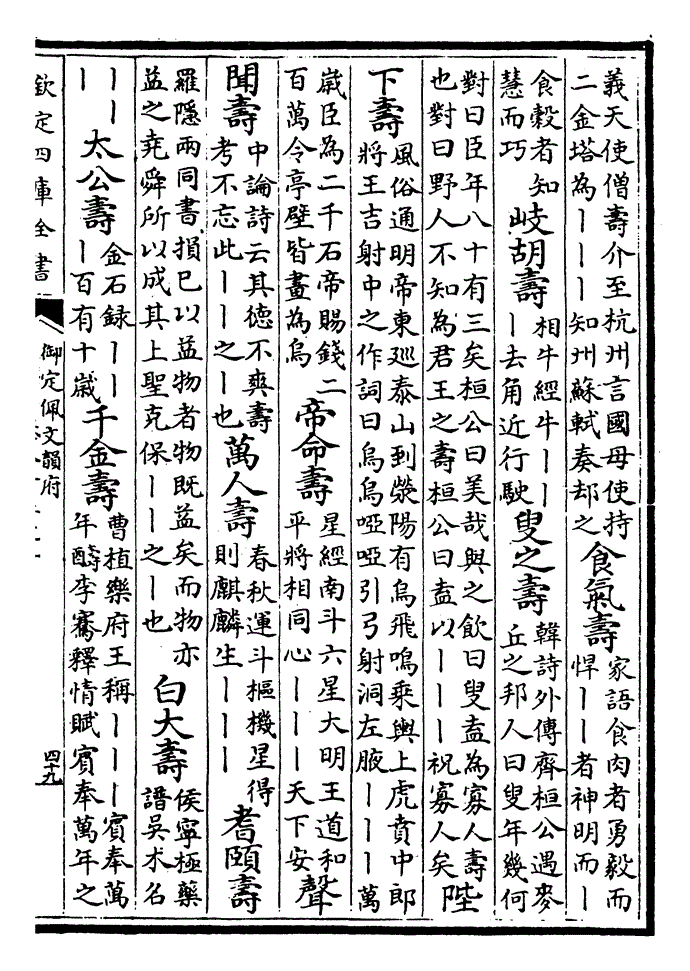 義天使僧壽介至杭州言國母使持
二金塔為丨丨丨知州蘇軾奏却之
食氣壽
家語食肉者勇毅而
悍丨丨者神明而丨
食穀者知
慧而巧
岐胡壽
相牛經牛丨丨
丨去角近行駛
叟之壽
韓詩外傳齊桓公遇麥
丘之邦人曰叟年幾何
對曰臣年八十有三矣桓公曰美哉與之飲曰叟盍為寡人壽
也對曰野人不知為君王之壽桓公曰盍以丨丨丨祝寡人矣
陛
下壽
風俗通明帝東巡泰山到滎陽有烏飛鳴乘輿上虎賁中郎
將王吉射中之作詞曰烏烏啞啞引弓射洞左腋丨丨丨萬
嵗臣為二千石帝賜錢二
百萬令亭壁皆畫為烏
帝命壽
星經南斗六星大明王道和
平將相同心丨丨丨天下安
聲
聞壽
中論詩云其德不爽壽
考不忘此丨丨之丨也
萬人壽
春秋運斗樞機星得
則麒麟生丨丨丨
耆頤壽
羅隱兩同書損已以益物者物既益矣而物亦
益之堯舜所以成其上聖克保丨丨之丨也
白大壽
侯寧極藥
譜吳术名
丨丨
丨
太公壽
金石録丨丨
丨百有十嵗
千金壽
曹植樂府王稱丨丨丨賓奉萬
年酬李騫釋情賦賓奉萬年之
欽定四庫全書
御定佩文韻府
四十九